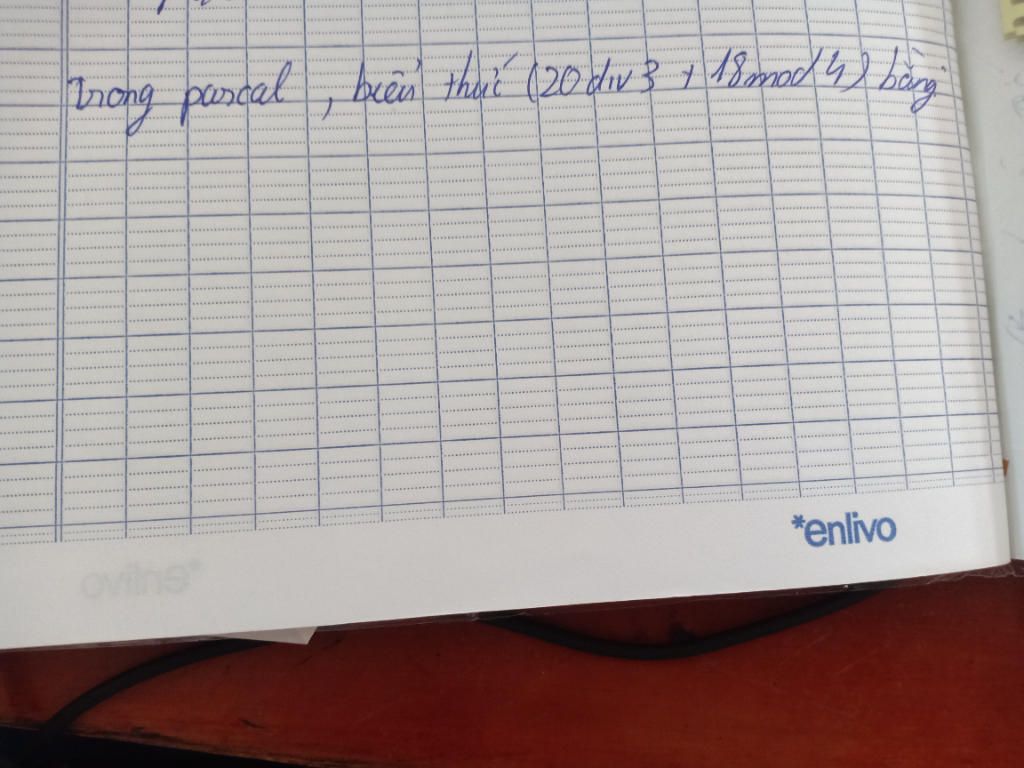 Trong pascal, biểu thức (20 div 3 + 18 mod 4) bằng
*enlivo